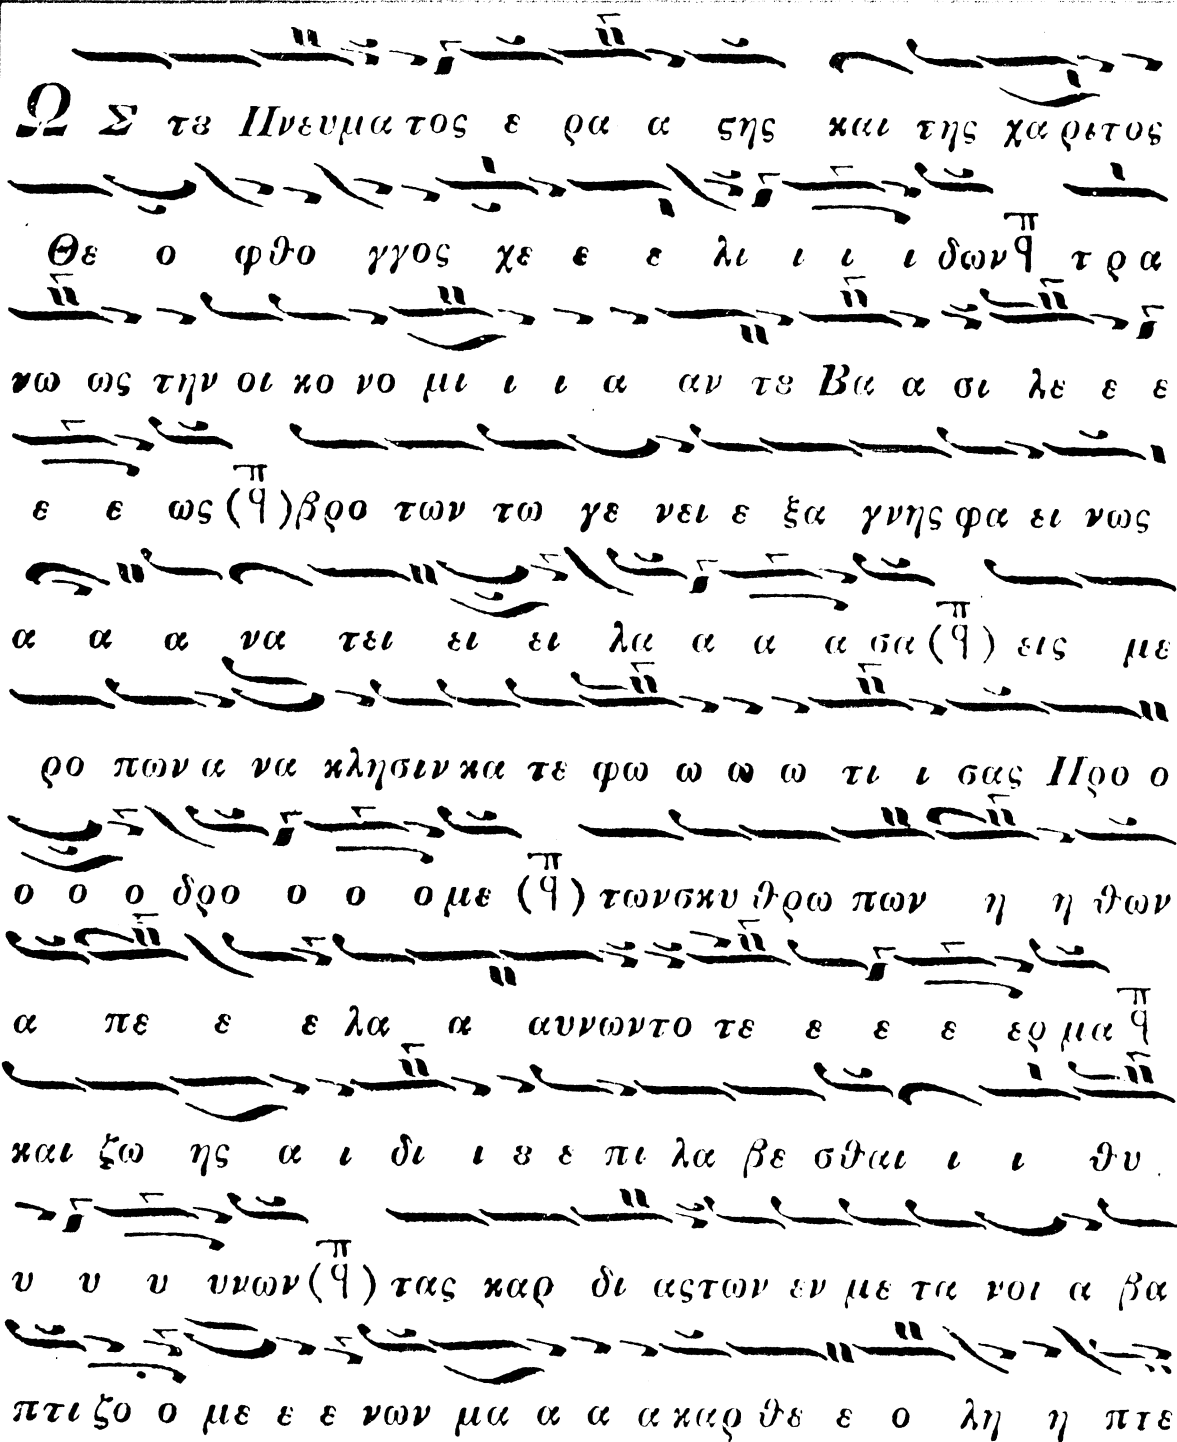 Ω Σ τȣ Πνευμα τος ε ρα α ϛης και της χα ριτος
Θε ο φθο γγος χε ε ε λι ι ι ι δων τ ρ α
νω ως την οι κο νο μι ι ι α αν τȣ Βα α σι λε ε ε
ε ε ως ( ) βρο των τω γε νει ε ξα γνης φα ει νως
α α α να τει ει ει λα α α α σα ( ) εις με
ρο πων α να κλησιν κα τε φω ω ω ω τι ι σας Προ ο
ο ο ο δρο ο ο ο με ( ) των σκυ θρω πων η η θων
α πε ε ε λα α αυνωντο τε ε ε ε ερ μα
και ζω ης α ι δι ι ȣ ε πι λα βε σθαι ι ι θυ
υ υ υ υνων ( ) τας καρ δι ας των εν με τα νοι α βα
πτι ζο ο με ε ε νων μα α α α καρ θε ε ο λη η πτε